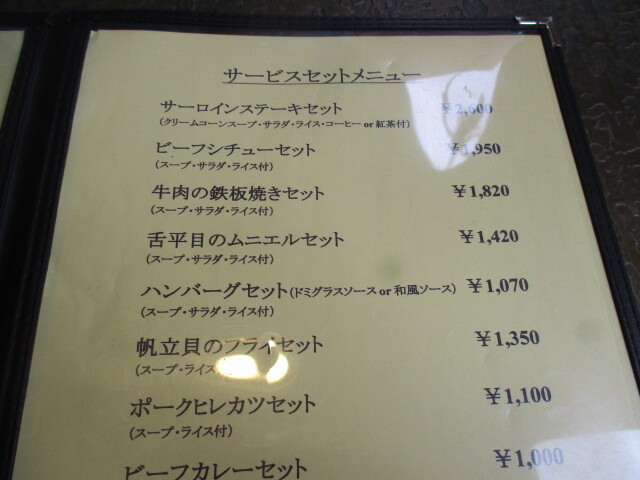 サービスセットメニュー
サーロインステーキセット ￥2,600
(クリームコーンスープ・サラダ・ライス・コーヒー or 紅茶付)
ビーフシチューセット ￥1,950
(スープ・サラダ・ライス付)
牛肉の鉄板焼きセット ￥1,820
(スープ・サラダ・ライス付)
舌平目のムニエルセット ￥1,420
(スープ・サラダ・ライス付)
ハンバーグセット(ドミグラスソース or 和風ソース) ￥1,070
(スープ・サラダ・ライス付)
帆立貝のフライセット ￥1,350
(スープ・ライス
ポークヒレカツセット ￥1,100
(スープ・ライス付)
ビーフカレーセット ￥1,000